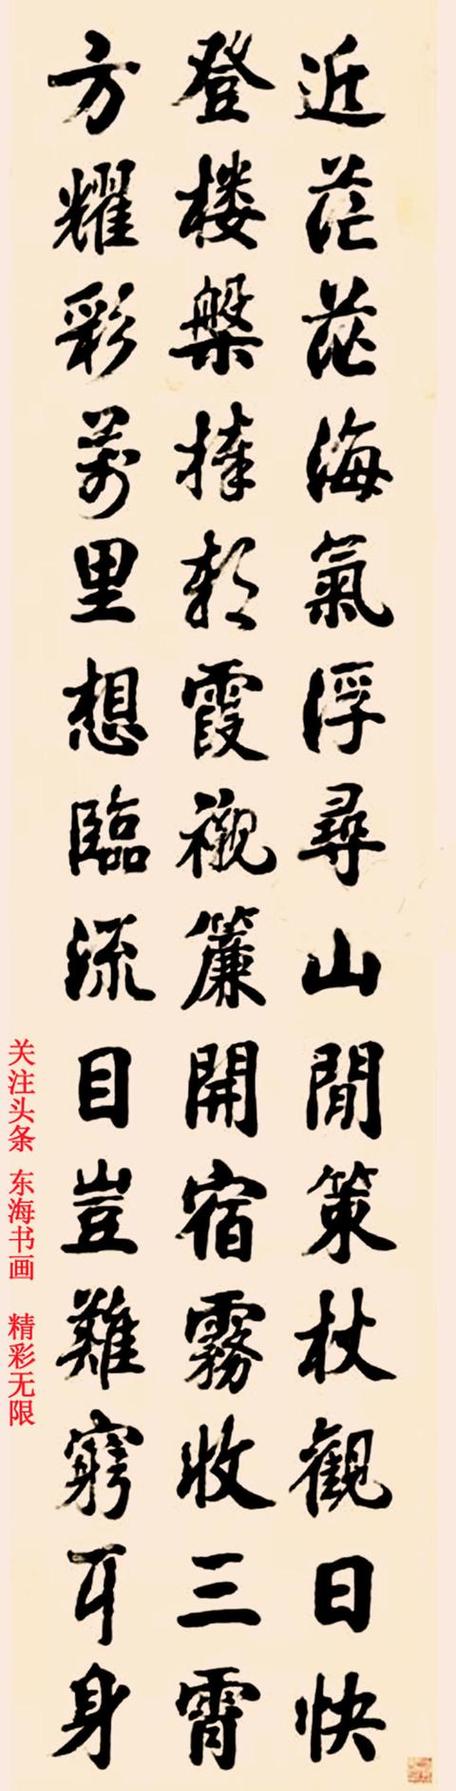 近茫茫海氣浮尋山閒策杖觀日快
登楼槃捧朝霞襯簾開宿霧收三霄
方耀彩萬里想臨流目豈難窮耳身
关注头条 东海书画 精彩无限